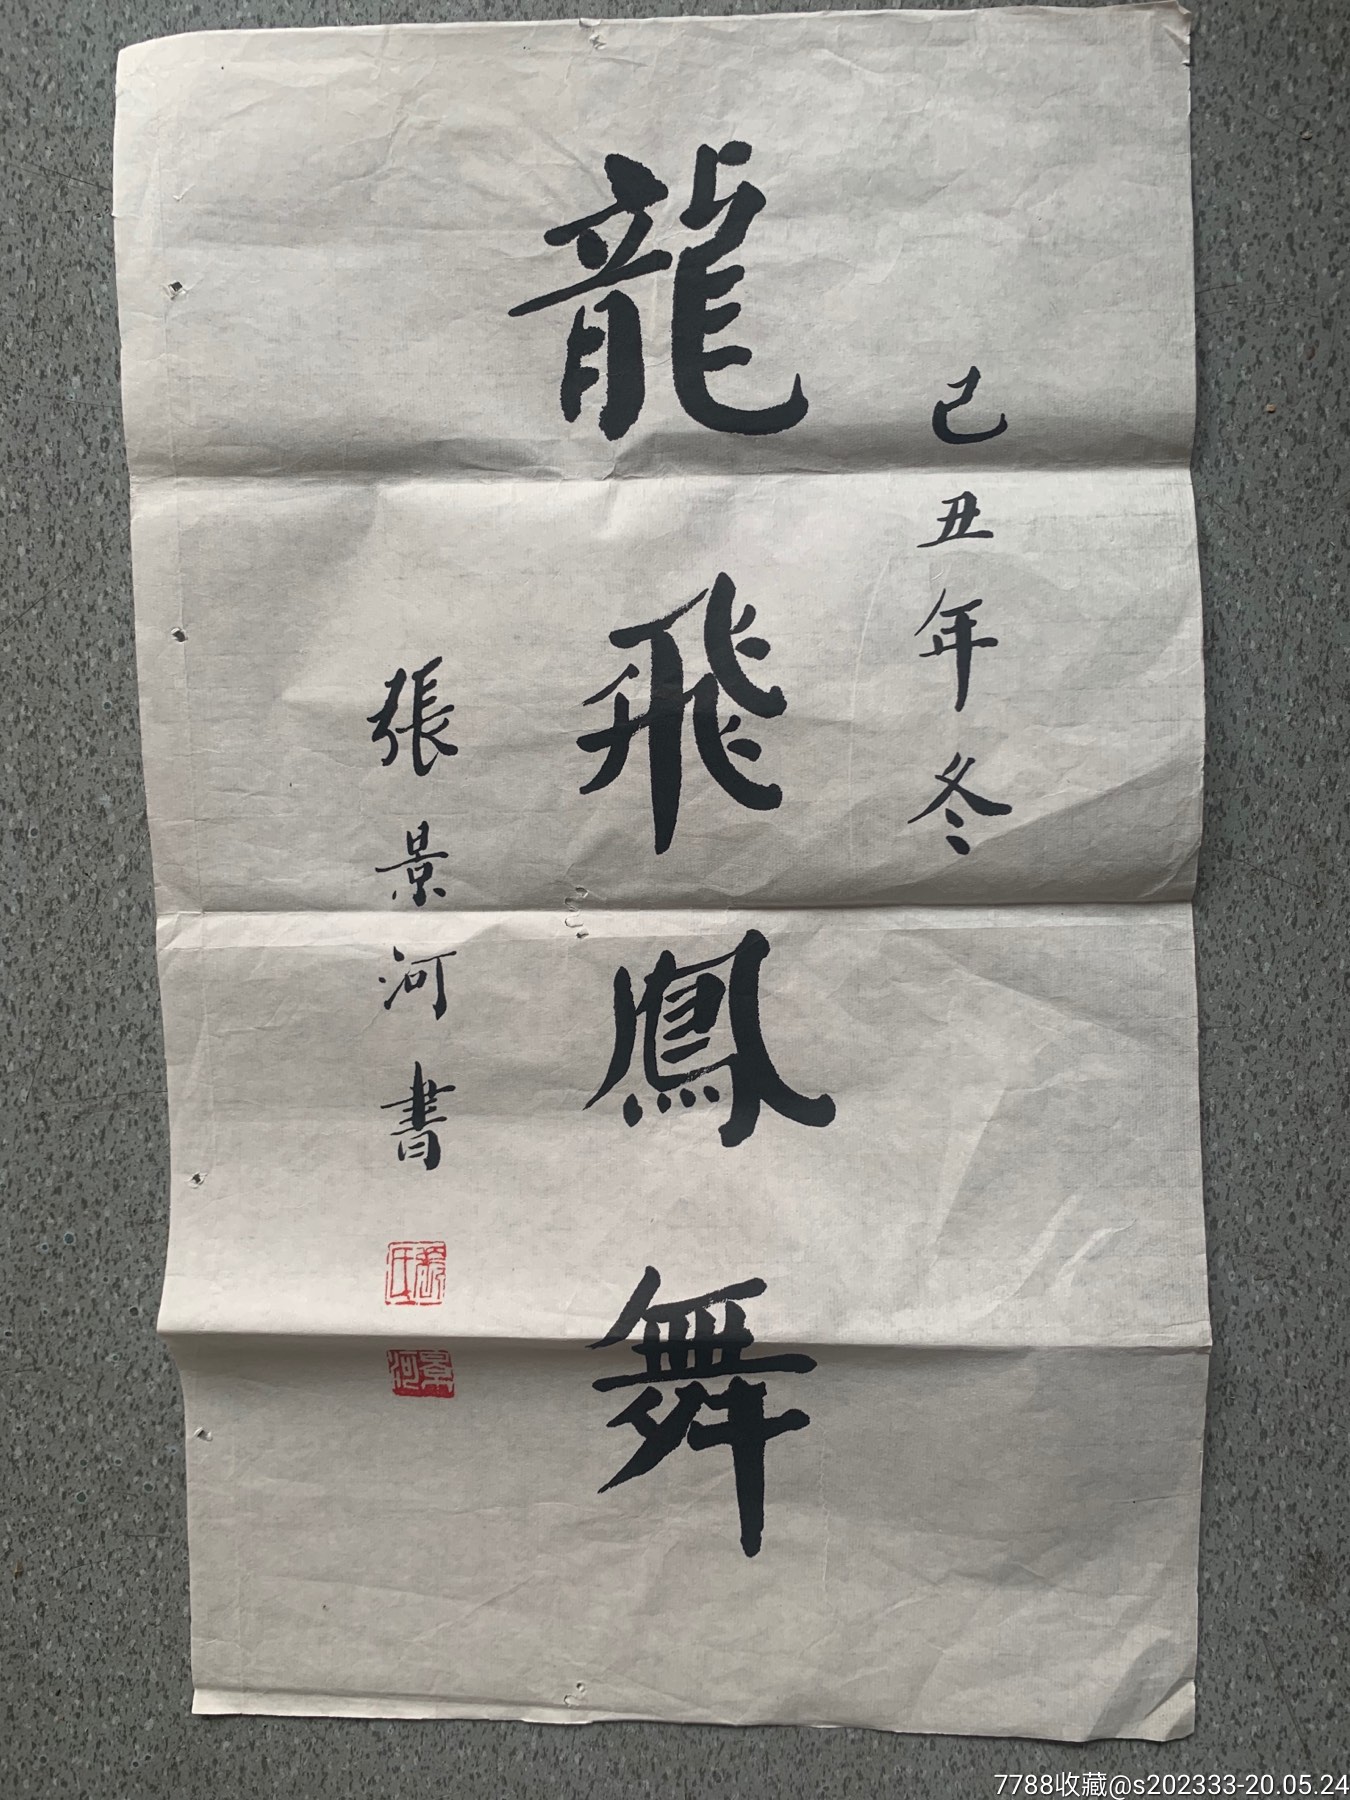 己丑年冬
龍飛鳳舞
張景河書
張氏
景河
7788收藏@s202333-20.05.24